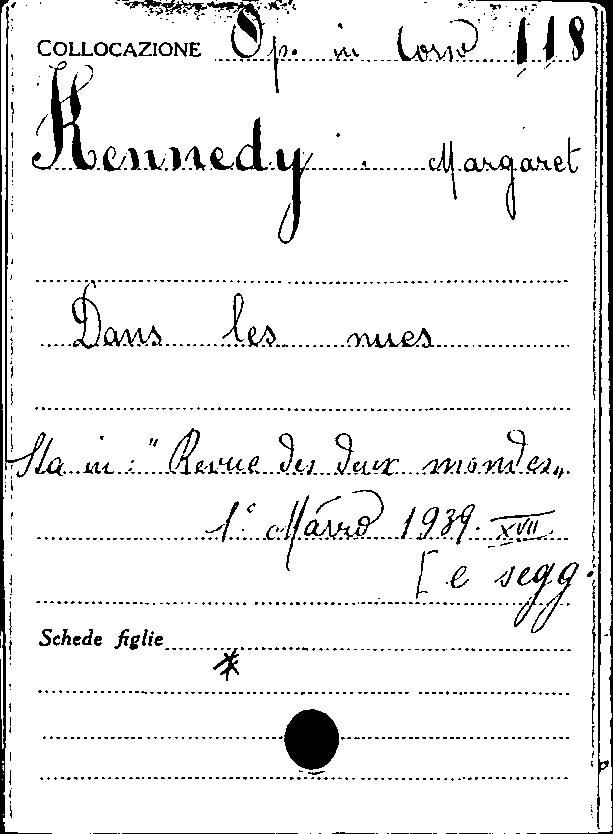 COLLOCAZIONE Op. in Corso 118
Kennedy. Margaret
Dans les nues
Sta in: "Revue des deux mondes„
1° Marzo 1939. XVII
[e segg.
Schede figlie
*